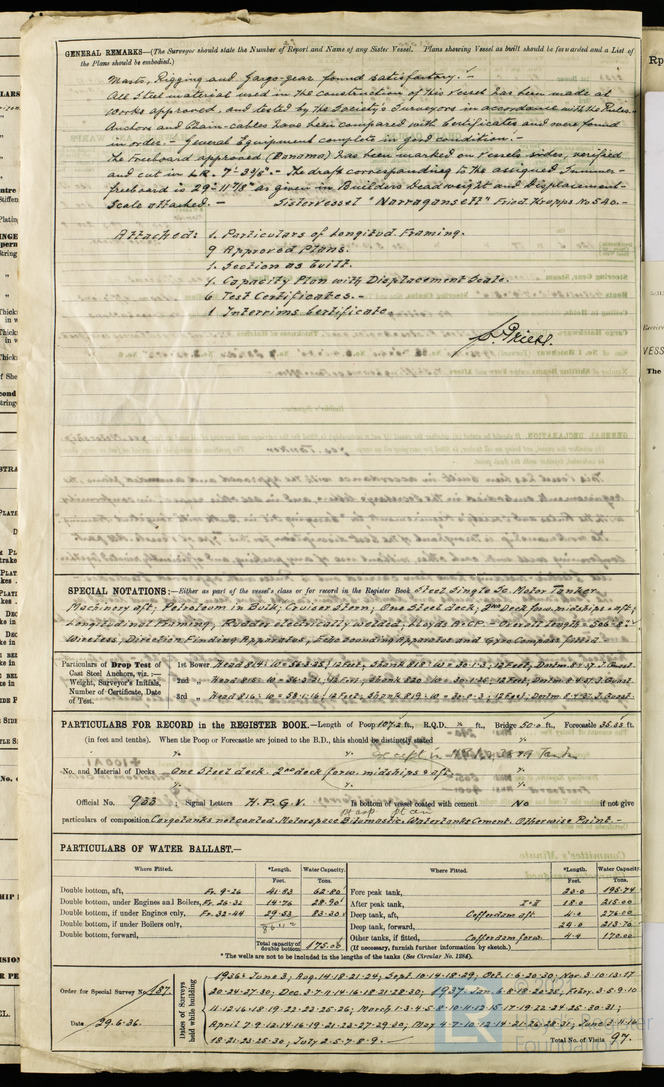 GENERAL REMARKS—(The Surveyor should state the Number of Report and Name of any Sister Vessel. Plans showing Vessel as built should be forwarded and a List of
the Plans should be embodied.)
Masts, Rigging and Cargo-gear found satisfactory.-
All Steel material used in the construction of this Vessel has been made at
Works approved, and tested by the Society's Surveyors in accordance with the Rules.-
Anchors and Chain-cables have been compared with Certificates and were found
in order.- General Equipment complete in good condition.-
The Freeboard approved (Panama) has been marked on Vessels sides, verified
and cut in The draft corresponding to the assigned Summer-
freeboard is as given in Builders Deadweight and Displacement
Scale attached.- Sistervessel "Narragansett" Fried. Krupps No 540.-
Attached: 1. Particulars of Longitud. Framing.
9 Approved Plans.
1. Section as built.
1. Capacity Plan with Displacement Scale.
6 Test Certificates.-
1 Interrims Certificate.
SPECIAL NOTATIONS:—Either as part of the vessel's class or for record in the Register Book Steel Single Sc. Motor Tanker
Machinery aft; Petroleum in Bulk; Cruiser Stern; One Steel deck; 2nd Deck forw. midships & aft;
Longitudinal Framing; Rudder electrically welded; Lloyds A&CP.- Overall length =
Wireless, Direction Finding Apparatus, Echo sounding Apparatus and Gyro Compass fitted
Particulars of Drop Test of
Cast Steel Anchors, viz.—
Weight, Surveyor's Initials,
Number of Certificate, Date
of Test.
1st Bower Head 814: W= 56.3.25; 12 Feet; Shank 818: W= 30.1.3; 12 Feet;
2nd „ Head 815: W= 56.3.21; 12 Feet; Shank 820: W= 30.1.25; 12 Feet;
3rd „ Head 816: W= 58.1.16; 12 Feet; Shank 819: W= 30.0.3; 12 Feet;
PARTICULARS FOR RECORD in the REGISTER BOOK.—Length of Poop 107.2 ft., R.Q.D. ft., Bridge 50.0 ft., Forecastle 35.33 ft.
(in feet and tenths). When the Poop or Forecastle are joined to the B.D., this should be distinctly stated
No. and Material of Decks One Steel deck. 2nd deck forw. midships & aft
Official No. 933 ; Signal Letters H.P.G.V. Is bottom of vessel coated with cement No if not give
particulars of composition Cargotanks not coated. Motorspace Bitumastic. Watertanks Cement. Otherwise Paint.-
PARTICULARS OF WATER BALLAST.—
Where Fitted. *Length. Feet. Water Capacity. Tons. Where Fitted. *Length. Feet. Water Capacity. Tons.
Double bottom, aft, Fr. 9-26 41.83 62.80 Fore peak tank, 23.0 195.74
Double bottom, under Engines and Boilers, Fr. 26-32 14.76 28.90 After peak tank, I+II 18.0 215.00
Double bottom, if under Engines only, Fr. 32-44 29.53 83.30 Deep tank, aft, Cofferdam aft. 4.0 276.00
Double bottom, if under Boilers only, Deep tank, forward, 24.0 213.70
Double bottom, forward, Other tanks, if fitted, Cofferdam forw. 4.9 170.00
Total capacity of double bottom 175.00 (If necessary, furnish further information by sketch.)
* The wells are not to be included in the lengths of the tanks (See Circular No. 1284).
Order for Special Survey No. 187.
Date 29.6.36.
Dates of Surveys held while building
1936: June 3; Aug. 14.18.21.24; Sept. 10.14.18.29; Oct. 1.6.20.30; Nov. 3.10.13.17
20.24.27.30; Dec. 3.7.11.14.16.18.21.28.30; 1937. Jan. 6.8.14.20.25; Febr. 3.5.9.10
11.12.16.18.19.22.23.25.26; March 1.3.4.5.8.10.11.13.15.17.19.22.24.25.30.31;
April 7.9.12.14.16.19.21.23.27.29.30; May 4.7.10.12.14.21.25.28.31; June 3.11.16
18.21.23.25.30; July 2.5.7.8.9.-
Total No. of Visits 97.
© 2021
Lloyd's Register
Foundation